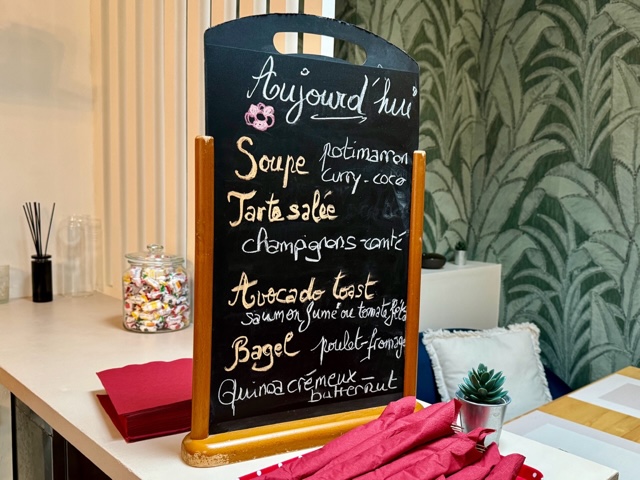 Aujourd'hui
Soupe potimarron
curry-coco
Tarte salée
champignons-comté
Avocado toast
saumon fumé ou tomate féta
Bagel poulet-fromage
Quinoa crémeux
butternut